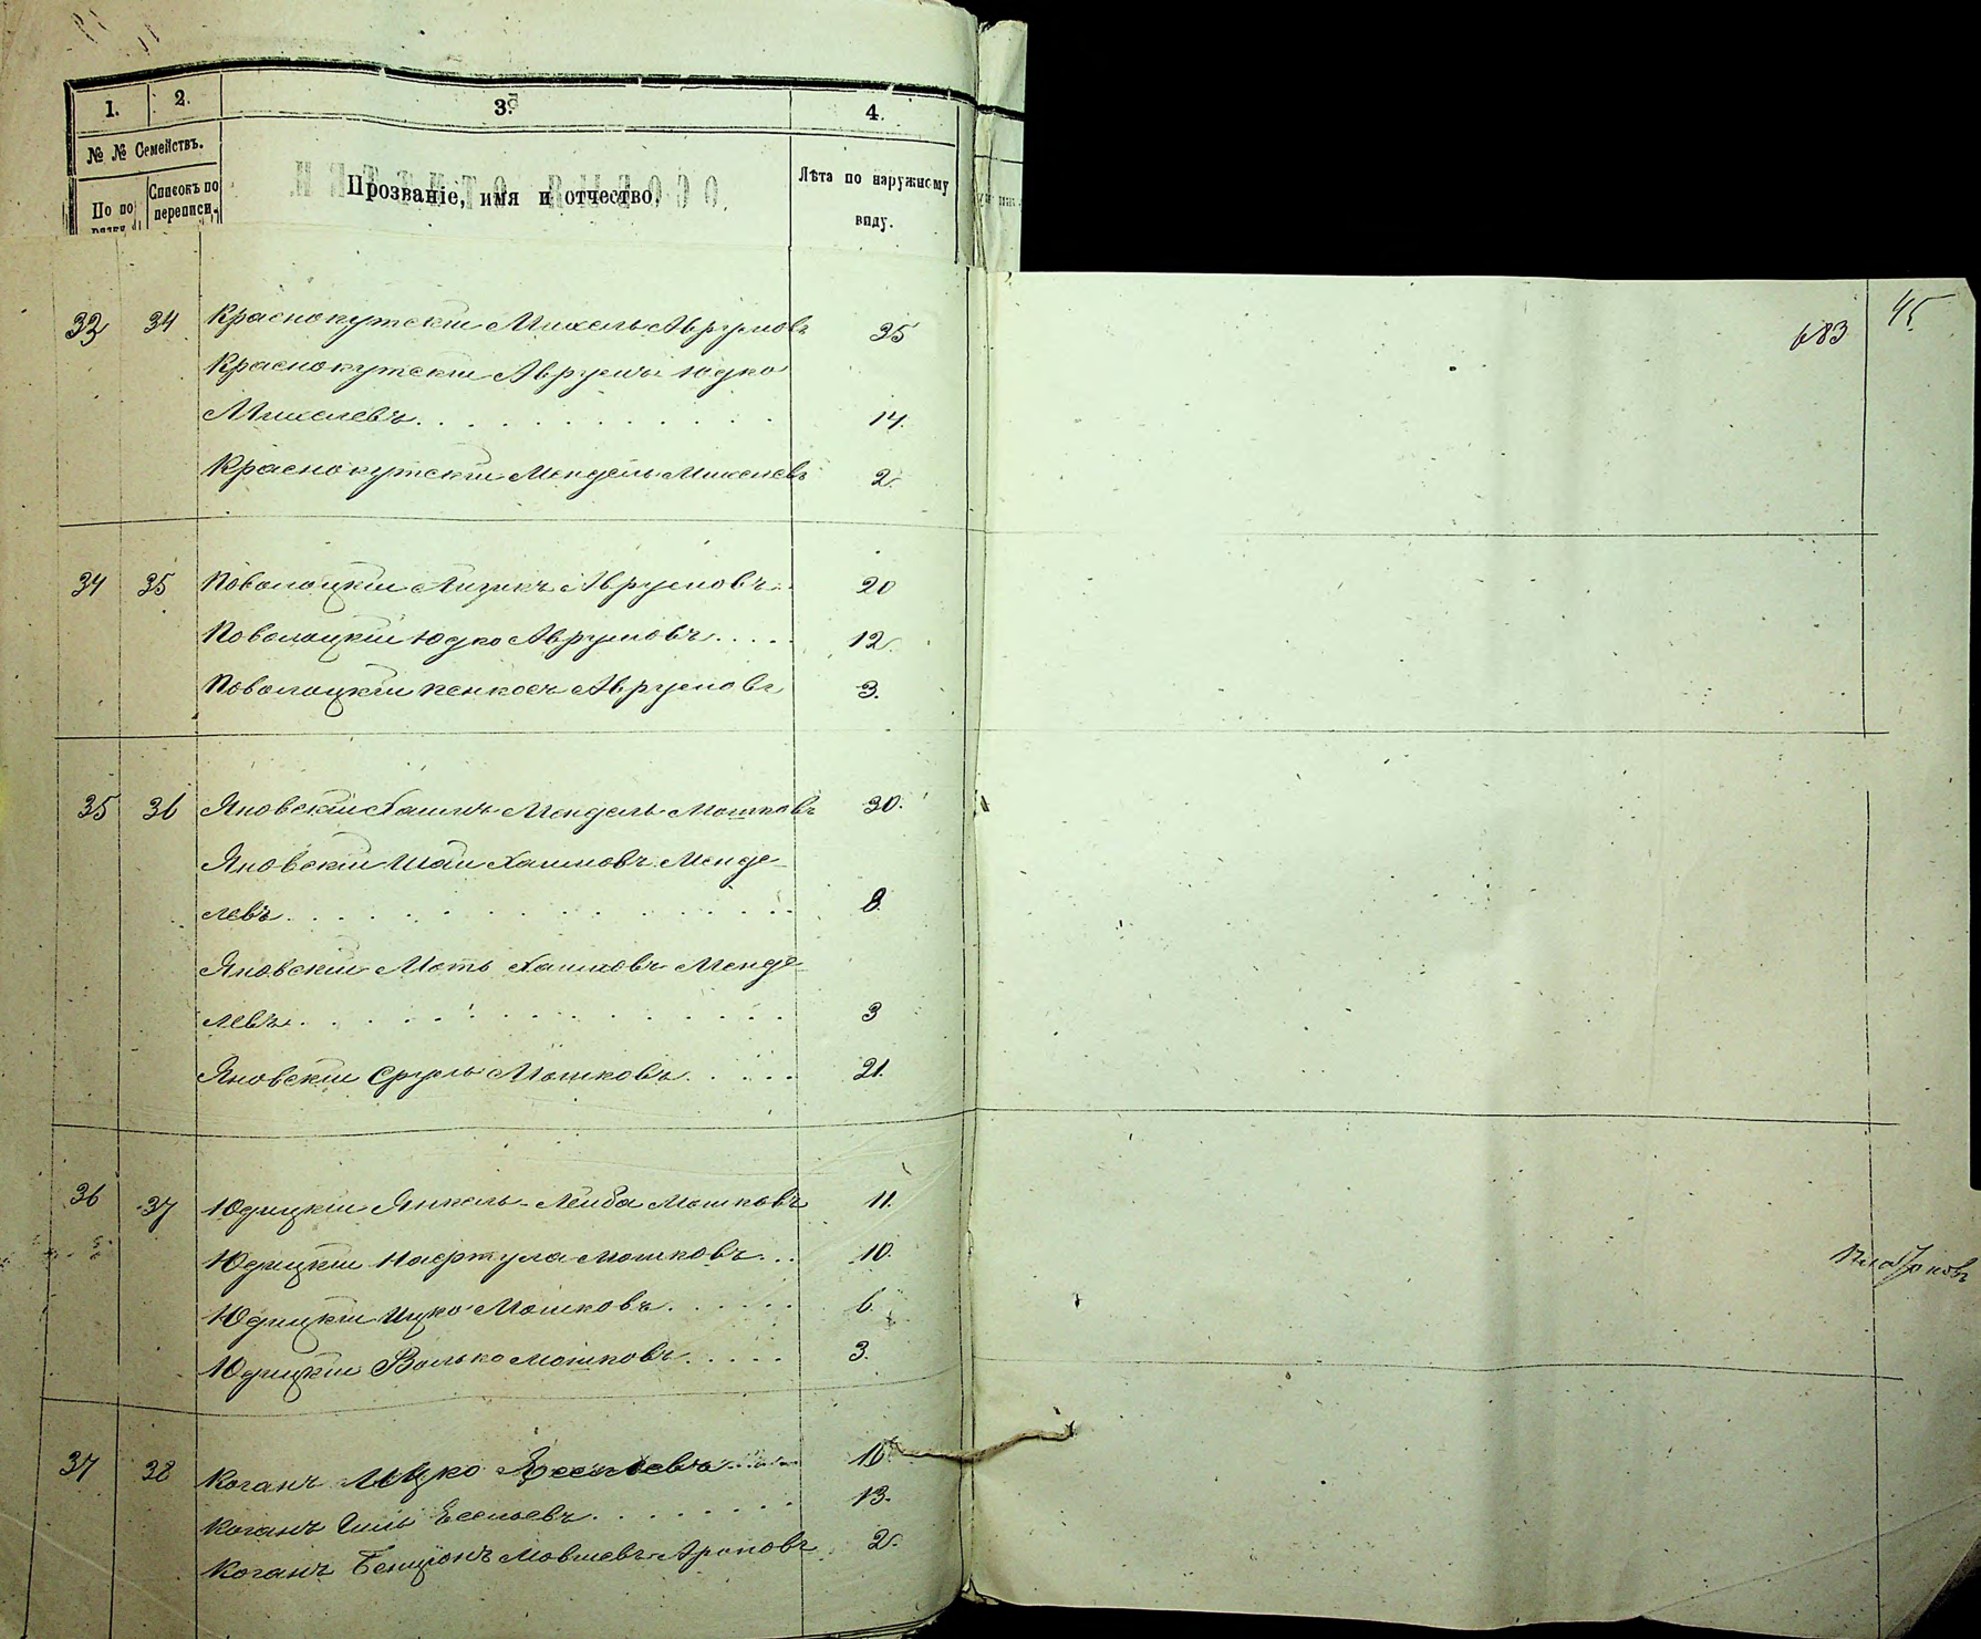 1. 2. 3. 4.
№ № Семействъ.
По по Списокъ по
рядку переписи.
Прозваніе, имя и отчество.
Лѣта по наружному
виду.
683 45
33 34 Краснокутскій Михель Аврумовъ 35
Краснокутскій Аврумъ Юдко
Михелевъ 14.
Краснокутскій Мендель Михелевъ 2.
34 35 Поволоцкій Айзикъ Аврумовъ 20
Поволоцкій Юдко Аврумовъ 12.
Поволоцкій Пенкосъ Аврумовъ 3.
35 36 Яновскій Хаимъ Мендель Мошковъ 30.
Яновскій Шаи Хаимовъ Менде-
левъ 8.
Яновскій Моть Хаимовъ Менде-
левъ 3
Яновскій Сруль Мошковъ 21.
36 37 Юдицкій Янкель-Лейба Мошковъ 11.
Юдицкій Нафтула Мошковъ 10.
Юдицкій Ицко Мошковъ 6.
Юдицкій Волько Мошковъ 3.
37 38 Коганъ Ицко 16
Коганъ Еселевъ 13.
Коганъ Бенціонъ Мовшевъ-Ароновъ 2.